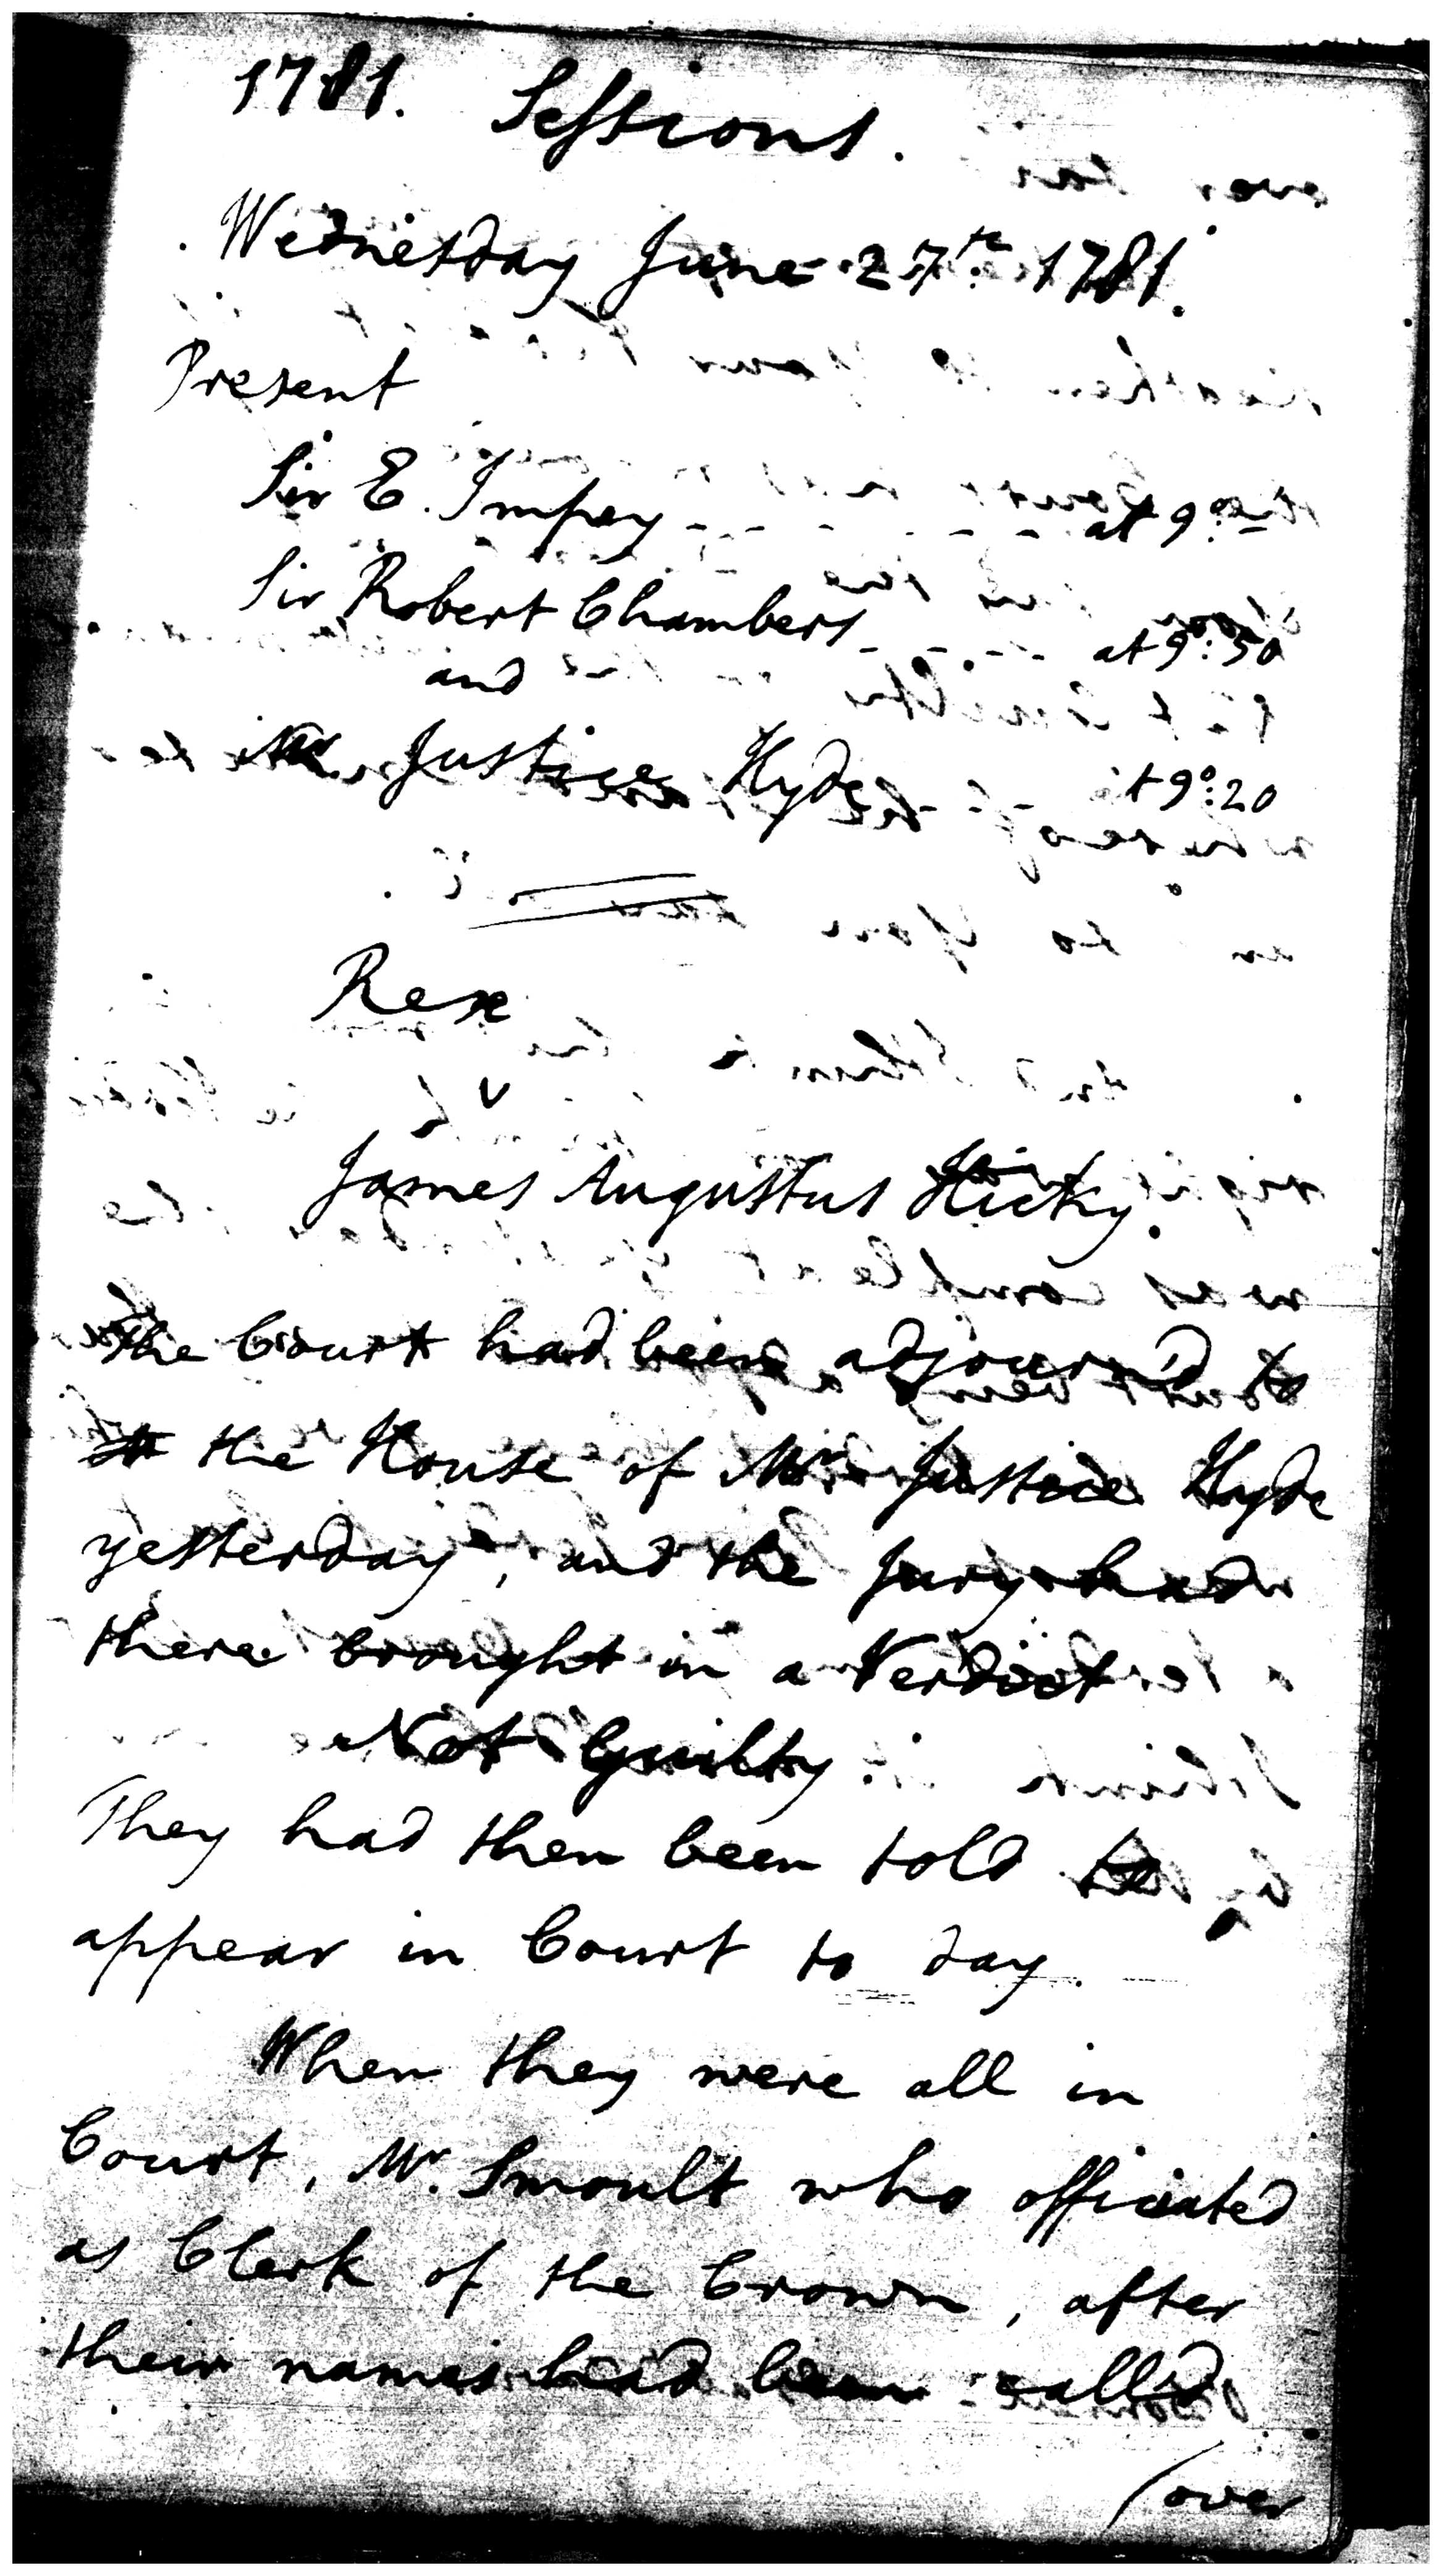 1781. Sessions.
Wednesday June 27th 1781.
Present
Sir E. Impey - - - - - - - at 9o:—
Sir Robert Chambers - - - - - at 9o:50
and
Mr. Justice Hyde - - - - at 9o:20
Rex
v
James Augustus Hicky.
The Court had been adjourn'd to
the House of Mr. Justice Hyde
yesterday, and the Jury had
there brought in a Verdict
Not Guilty
They had then been told to
appear in Court to day.
When they were all in
Court, Mr. Smoult who officiated
as Clerk of the Crown, after
their names had been call'd
(over